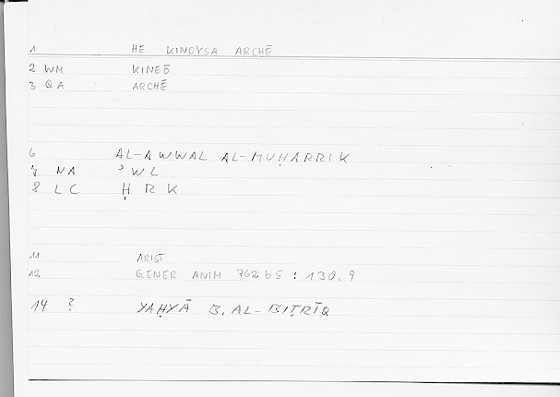 1 HE KINOYSA ARCHĒ
2 WM KINEŌ
3 QA ARCHĒ
6 AL-AWWAL AL-MUḤARRIK
7 NA ʾWL
8 LC Ḥ R K
11 ARIST
12 GENER ANIM 762b5 : 130.9
14 ? YAḤYĀ B. AL-BIṬRĪQ